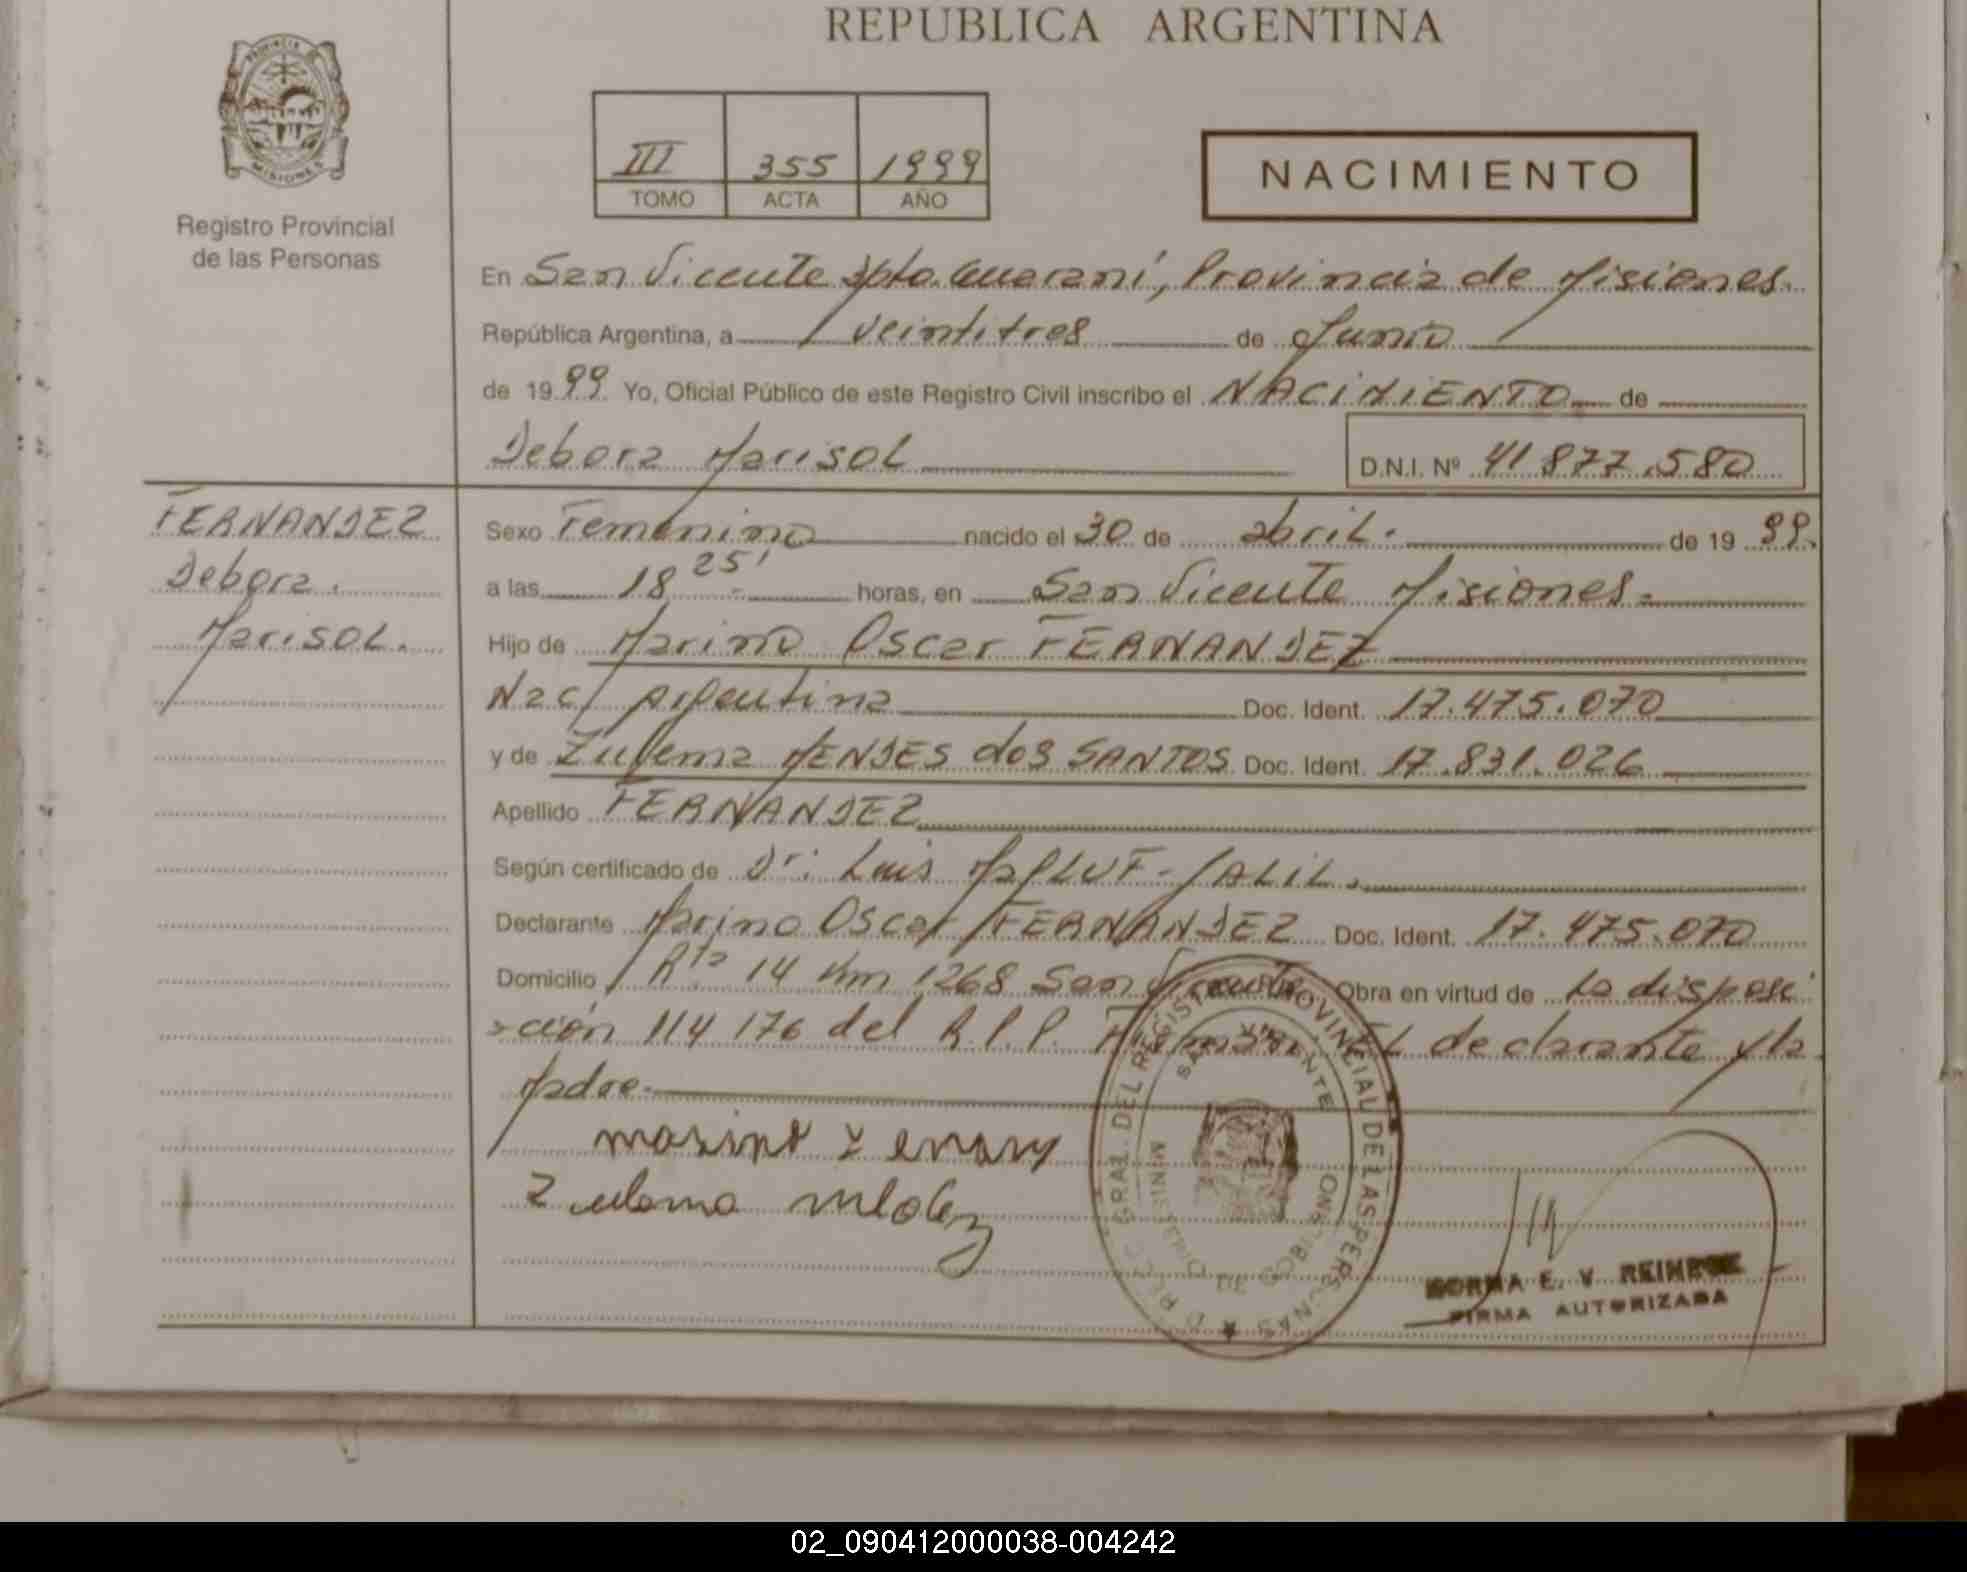 REPUBLICA ARGENTINA
PROVINCIA DE MISIONES
Registro Provincial
de las Personas
III 355 1999
TOMO ACTA AÑO
NACIMIENTO
En San Vicente Dpto. Guaraní, Provincia de Misiones.
República Argentina, a veintitres de Junio
de 1999 Yo, Oficial Público de este Registro Civil inscribo el NACIMIENTO de
Debora Marisol D.N.I. Nº 41.877.580
FERNANDEZ
Debora.
Marisol.
Sexo Femenino nacido el 30 de abril. de 1999.
a las 18 25' horas, en San Vicente Misiones.
Hijo de Marino Oscar FERNANDEZ
Nac/ Argentina Doc. Ident. 17.475.070
y de Zulema MENDES dos SANTOS Doc. Ident. 17.831.026
Apellido FERNANDEZ
Según certificado de Dr: Luis MAPLUF-JALIL.
Declarante Marino Oscar FERNANDEZ Doc. Ident. 17.475.070
Domicilio Rta 14 Km 1268 San Vicente Obra en virtud de la disposi
ción 114 176 del R.P.P. Firman: El declarante y la
Madre.
Zulema
D. REC. GRAL. DEL REGISTRO PROVINCIAL DE LAS PERSONAS
SAN VICENTE
MINISTERIO DE GOBIERNO
NORMA E. V.
FIRMA AUTORIZADA
02_090412000038-004242